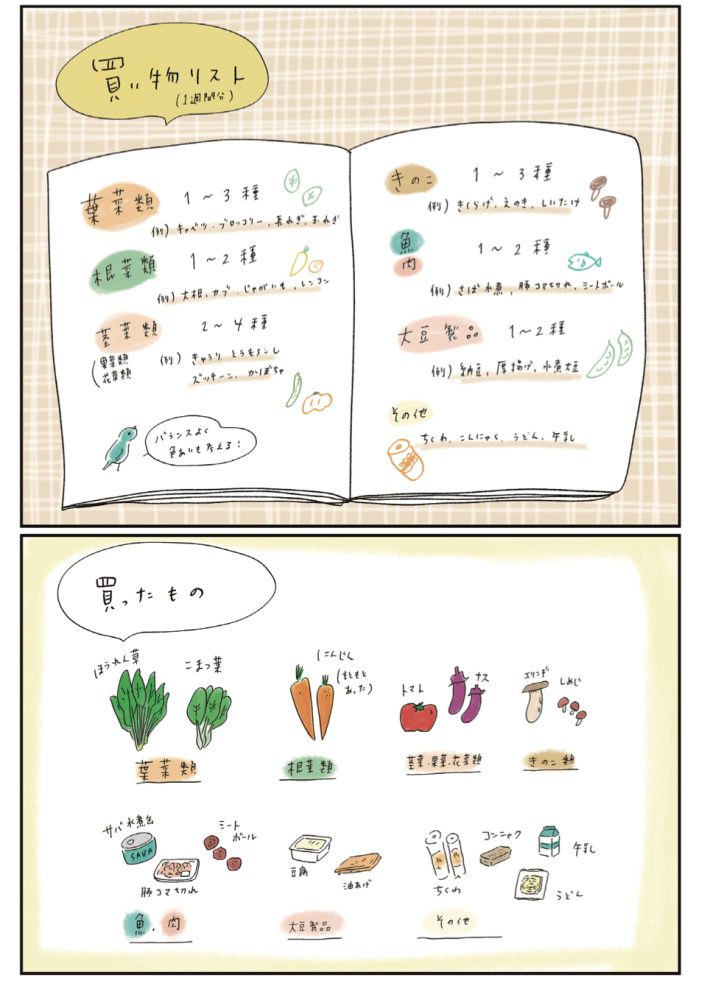 買い物リスト
(1週間分)
葉菜類 1〜3種
例) キャベツ、ブロッコリー、長ねぎ、玉ねぎ
根菜類 1〜2種
例) 大根、カブ、じゃがいも、レンコン
茎菜類 2〜4種
(果菜類
花菜類
例) きゅうり とうもろこし
ズッキーニ、かぼちゃ
バランスよく
色あいも考える!
きのこ 1〜3種
例) きくらげ、えのき、しいたけ
魚
肉 1〜2種
例) さば水煮、豚コマ切れ、ミートボール
大豆製品 1〜2種
例) 納豆、厚揚げ、水煮大豆
その他
ちくわ、こんにゃく、うどん、牛乳
買ったもの
ほうれん草
こまつ葉
葉菜類
にんじん
(もともと
あった)
根菜類
トマト
ナス
茎菜・果菜・花菜類
エリンギ
しめじ
きのこ類
サバ水煮缶
SABA
ミート
ボール
豚コマ切れ
魚、肉
豆腐
油あげ
大豆製品
ちくわ
コンニャク
牛乳
うどん
その他